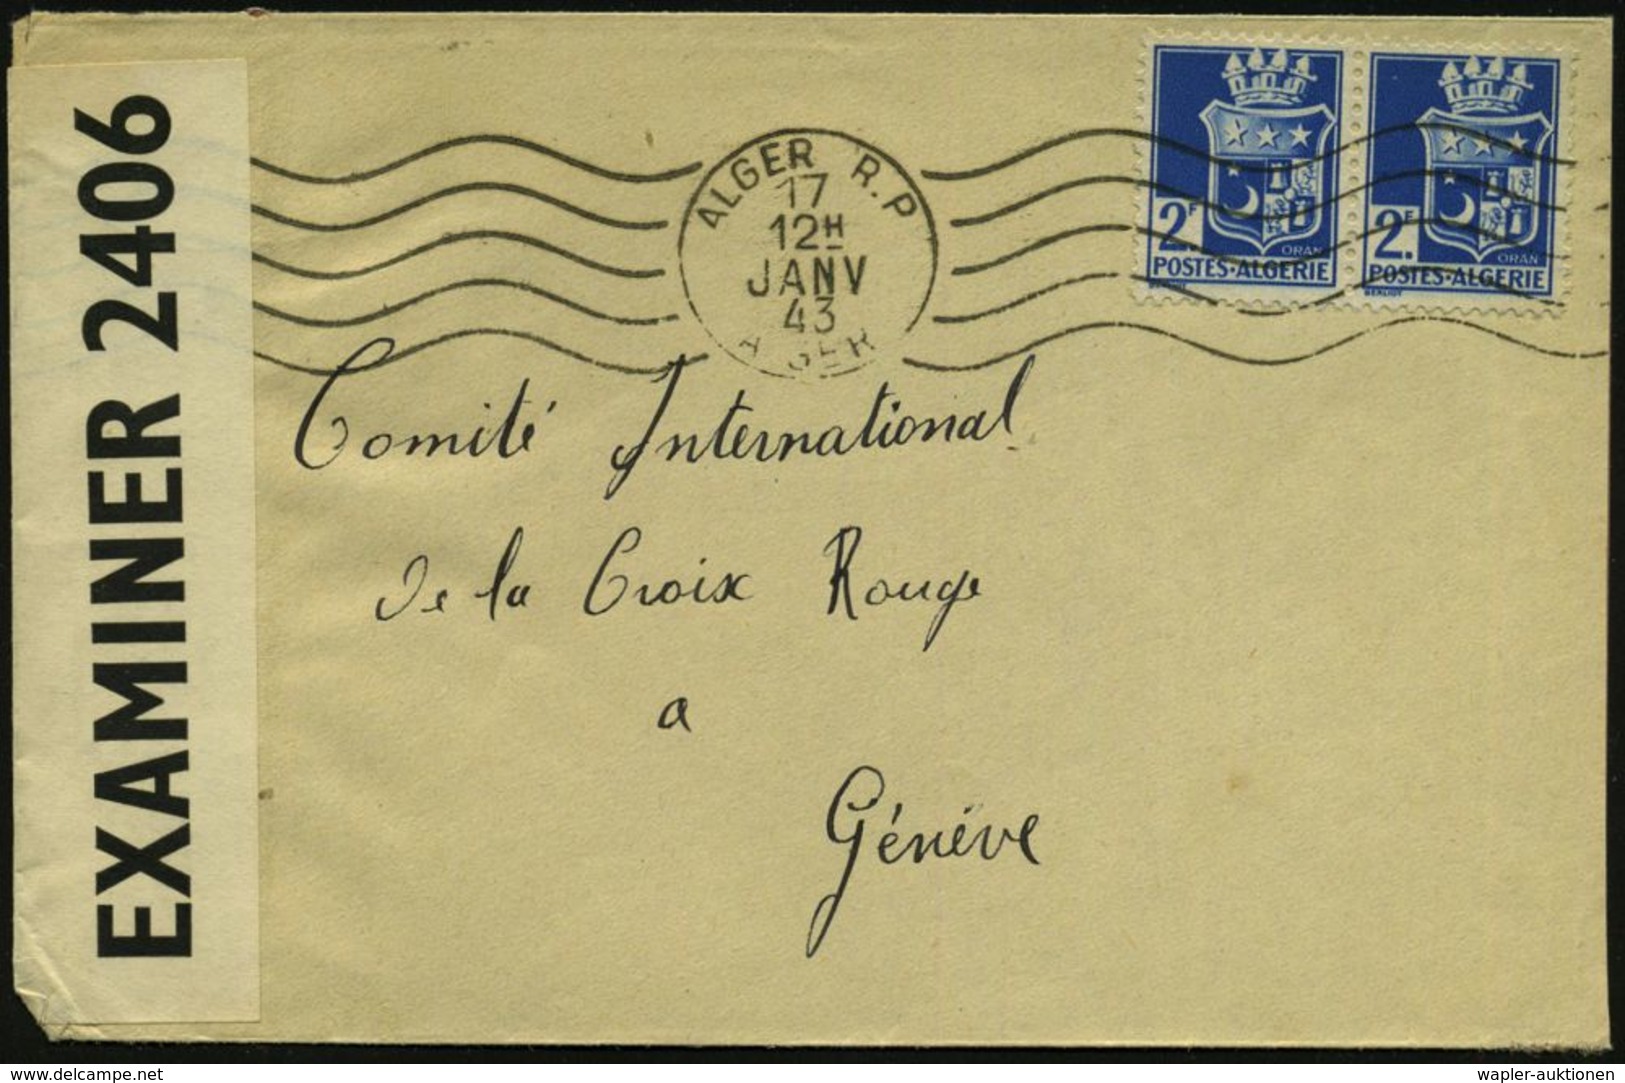 EXAMINER 2406
ALGER R.P
17
12H
JANV
43
ALGER
2F
ORAN
POSTES·ALGERIE
2F
ORAN
POSTES·ALGERIE
Comité International
De la Croix Rouge
a
Généve
www.delcampe.net
wapler-auktionen